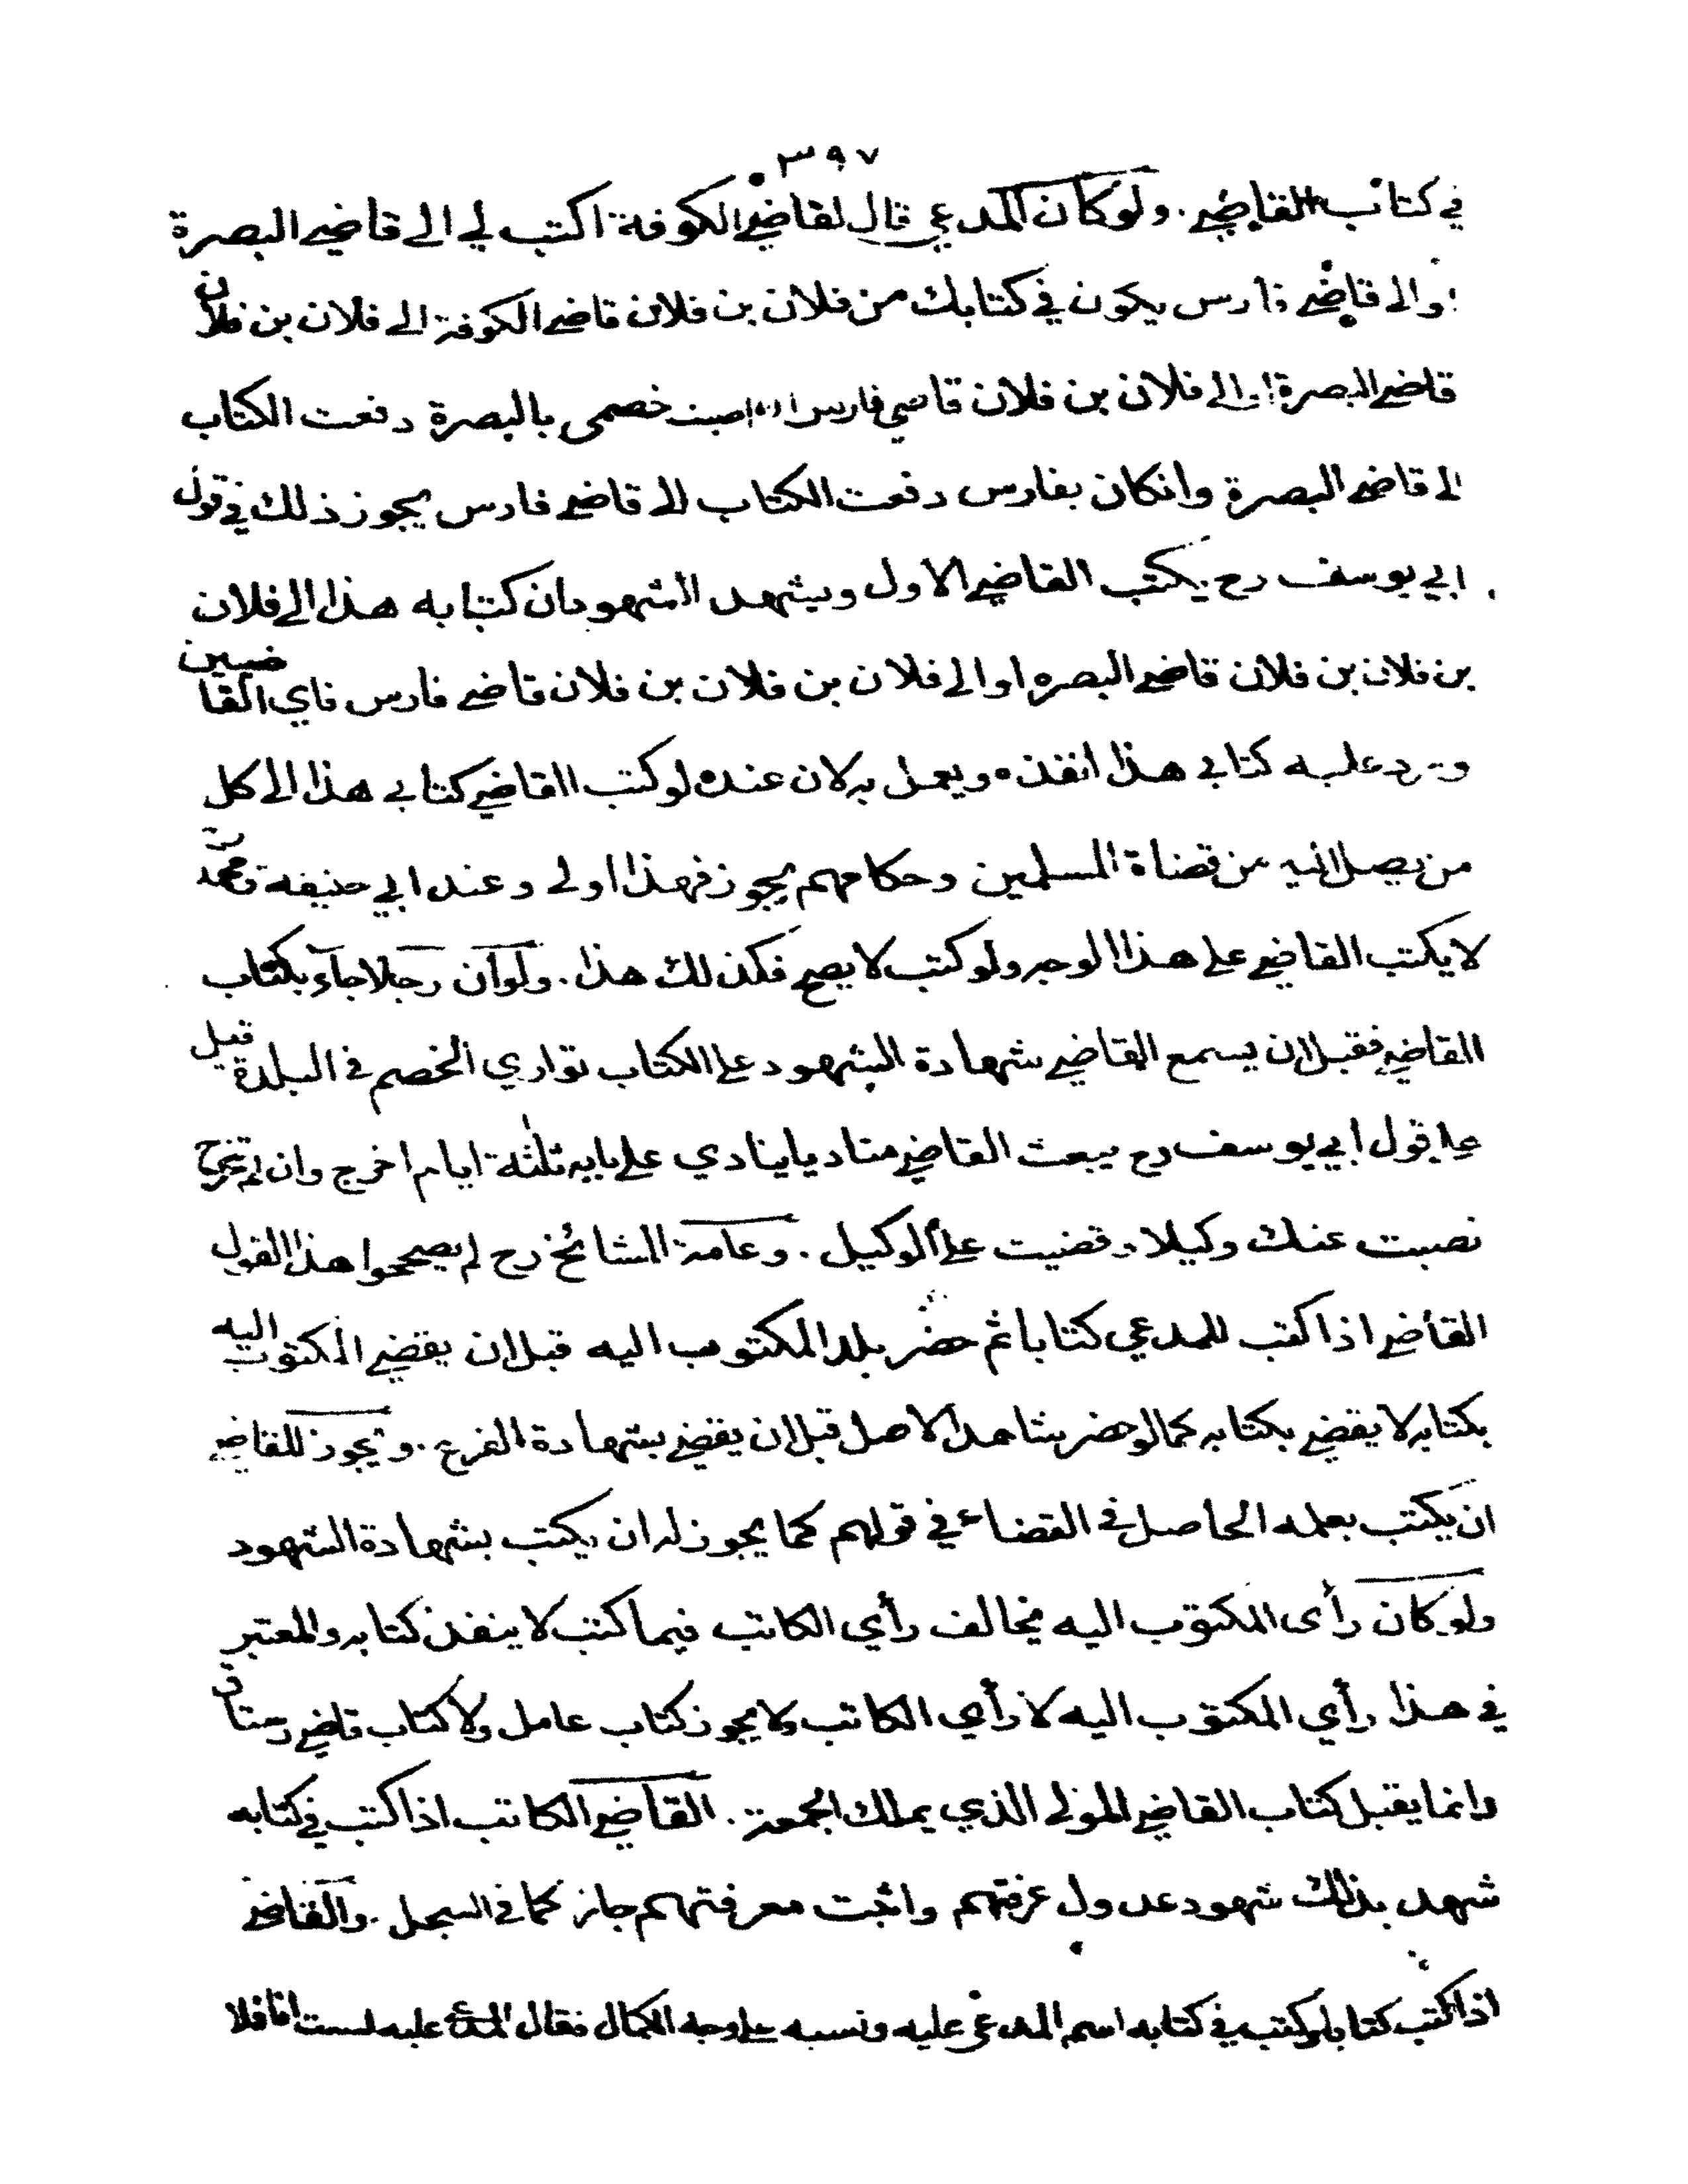 ٣٩٧
في كتاب القاضي. ولو كان المدعي قال لقاضي الكوفة اكتب لي الى قاضي البصرة
او الى قاضي فارس يكون في كتابك من فلان بن فلان قاضي الكوفة الى فلان بن فلان
قاضي البصرة او الى فلان بن فلان قاضي فارس اصبت خصمي بالبصرة دفعت الكتاب
الى قاضي البصرة وان كان بفارس دفعت الكتاب الى قاضي فارس يجوز ذلك في قول
ابي يوسف رح يكتب القاضي الاول ويشهد الشهود بان كتابه هذا الى فلان
بن فلان بن فلان قاضي البصره او الى فلان بن فلان بن فلان قاضي فارس فاي القاضيين
ورد عليه كتابي هذا انفذه ويعمل به لان عنده لو كتب القاضي كتابي هذا الى كل
من يصل اليه من قضاة المسلمين وحكامهم يجوز فهذا اولى وعند ابي حنيفة ومحمد رح
لا يكتب القاضي على هذا الوجه ولو كتب لا يصح فكذلك هذا. ولو ان رجلا جاء بكتاب
القاضي فقبل ان يسمع القاضي شهادة الشهود على الكتاب توارى الخصم في البلدة قيل
على قول ابي يوسف رح يبعث القاضي مناديا ينادي على بابه ثلثة ايام اخرج وان لم تخرج
نصبت عنك وكيلا وقضيت على الوكيل. وعامة المشائخ رح لم يصححوا هذا القول
القاضي اذا كتب للمدعي كتابا ثم حضر بلد المكتوب اليه قبل ان يقضي المكتوب اليه
بكتابه لا يقضي بكتابه كما لو حضر شاهد الاصل قبل ان يقضي بشهادة الفرع. ويجوز للقاضي
ان يكتب بعلمه الحاصل في القضاء في قولهم كما يجوز له ان يكتب بشهادة الشهود
ولو كان رأى المكتوب اليه يخالف رأي الكاتب فيما كتب لا ينفذ كتابه والمعتبر
في هذا رأي المكتوب اليه لا رأي الكاتب ولا يجوز كتاب عامل ولا كتاب قاضي رستاق
وانما يقبل كتاب القاضي المولى الذي يملك الجمعة. القاضي الكاتب اذا كتب في كتابه
شهد بذلك شهود عدول عرفتهم واثبت معرفتهم جاز كما في السجل. والقاضي
اذا كتب كتابا وكتب في كتابه اسم المدعى عليه ونسبه على وجه الكمال فقال المدعى عليه لست انا فلا